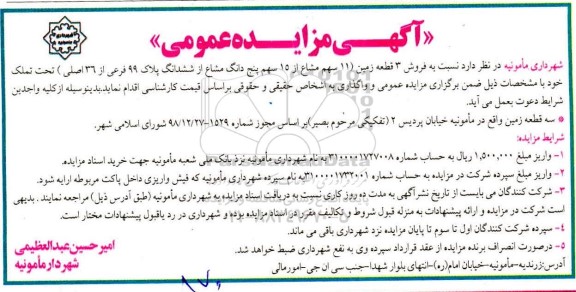 «آگهی مزایده عمومی»
شهرداری مأمونیه در نظر دارد نسبت به فروش ۳ قطعه زمین (۱۱ سهم مشاع از ۱۵ سهم پنج دانگ مشاع از ششدانگ پلاک ۹۹ فرعی از ۳۶ اصلی ) تحت تملک
خود با مشخصات ذیل ضمن برگزاری مزایده عمومی و واگذاری به اشخاص حقیقی و حقوقی براساس قیمت کارشناسی اقدام نماید.بدینوسیله ازکلیه واجدین
شرایط دعوت بعمل می آید.
* سه قطعه زمین واقع در مأمونیه خیابان پردیس ۲ (تفکیکی مرحوم بصیر)بر اساس مجوز شماره ۱۵۲۹-۹۸/۱۲/۲۷ شورای اسلامی شهر.
شرایط مزایده:
۱- واریز مبلغ ۱,۵۰۰,۰۰۰ ریال به حساب شماره ۳۱۰۰۰۰۱۷۲۷۰۰۸ به نام شهرداری مأمونیه نزد بانک ملی شعبه مأمونیه جهت خرید اسناد مزایده.
۲- واریز مبلغ سپرده شرکت در مزایده به حساب شماره ۳۱۰۰۰۰۱۷۳۲۰۰۱ به نام سپرده شهرداری مأمونیه که فیش واریزی داخل پاکت مربوطه ارایه شود.
۳- شرکت کنندگان می بایست از تاریخ نشرآگهی به مدت ده روز کاری نسبت به دریافت اسناد مزایده به شهرداری مأمونیه (طبق آدرس ذیل) مراجعه نمایند . بدیهی
است شرکت در مزایده و ارائه پیشنهادات به منزله قبول شروط و تکالیف مقرر در اسناد مزایده بوده و شهرداری در رد یاقبول پیشنهادات مختار است.
۴- سپرده شرکت کنندگان اول تا سوم تا پایان مزایده نزد شهرداری باقی می ماند.
۵- درصورت انصراف برنده مزایده از عقد قرارداد سپرده وی به نفع شهرداری ضبط خواهد شد.
آدرس:زرندیه-مأمونیه-خیابان امام(ره)-انتهای بلوار شهدا-جنب سی ان جی-امورمالی
امیرحسین عبدالعظیمی
شهردار مأمونیه